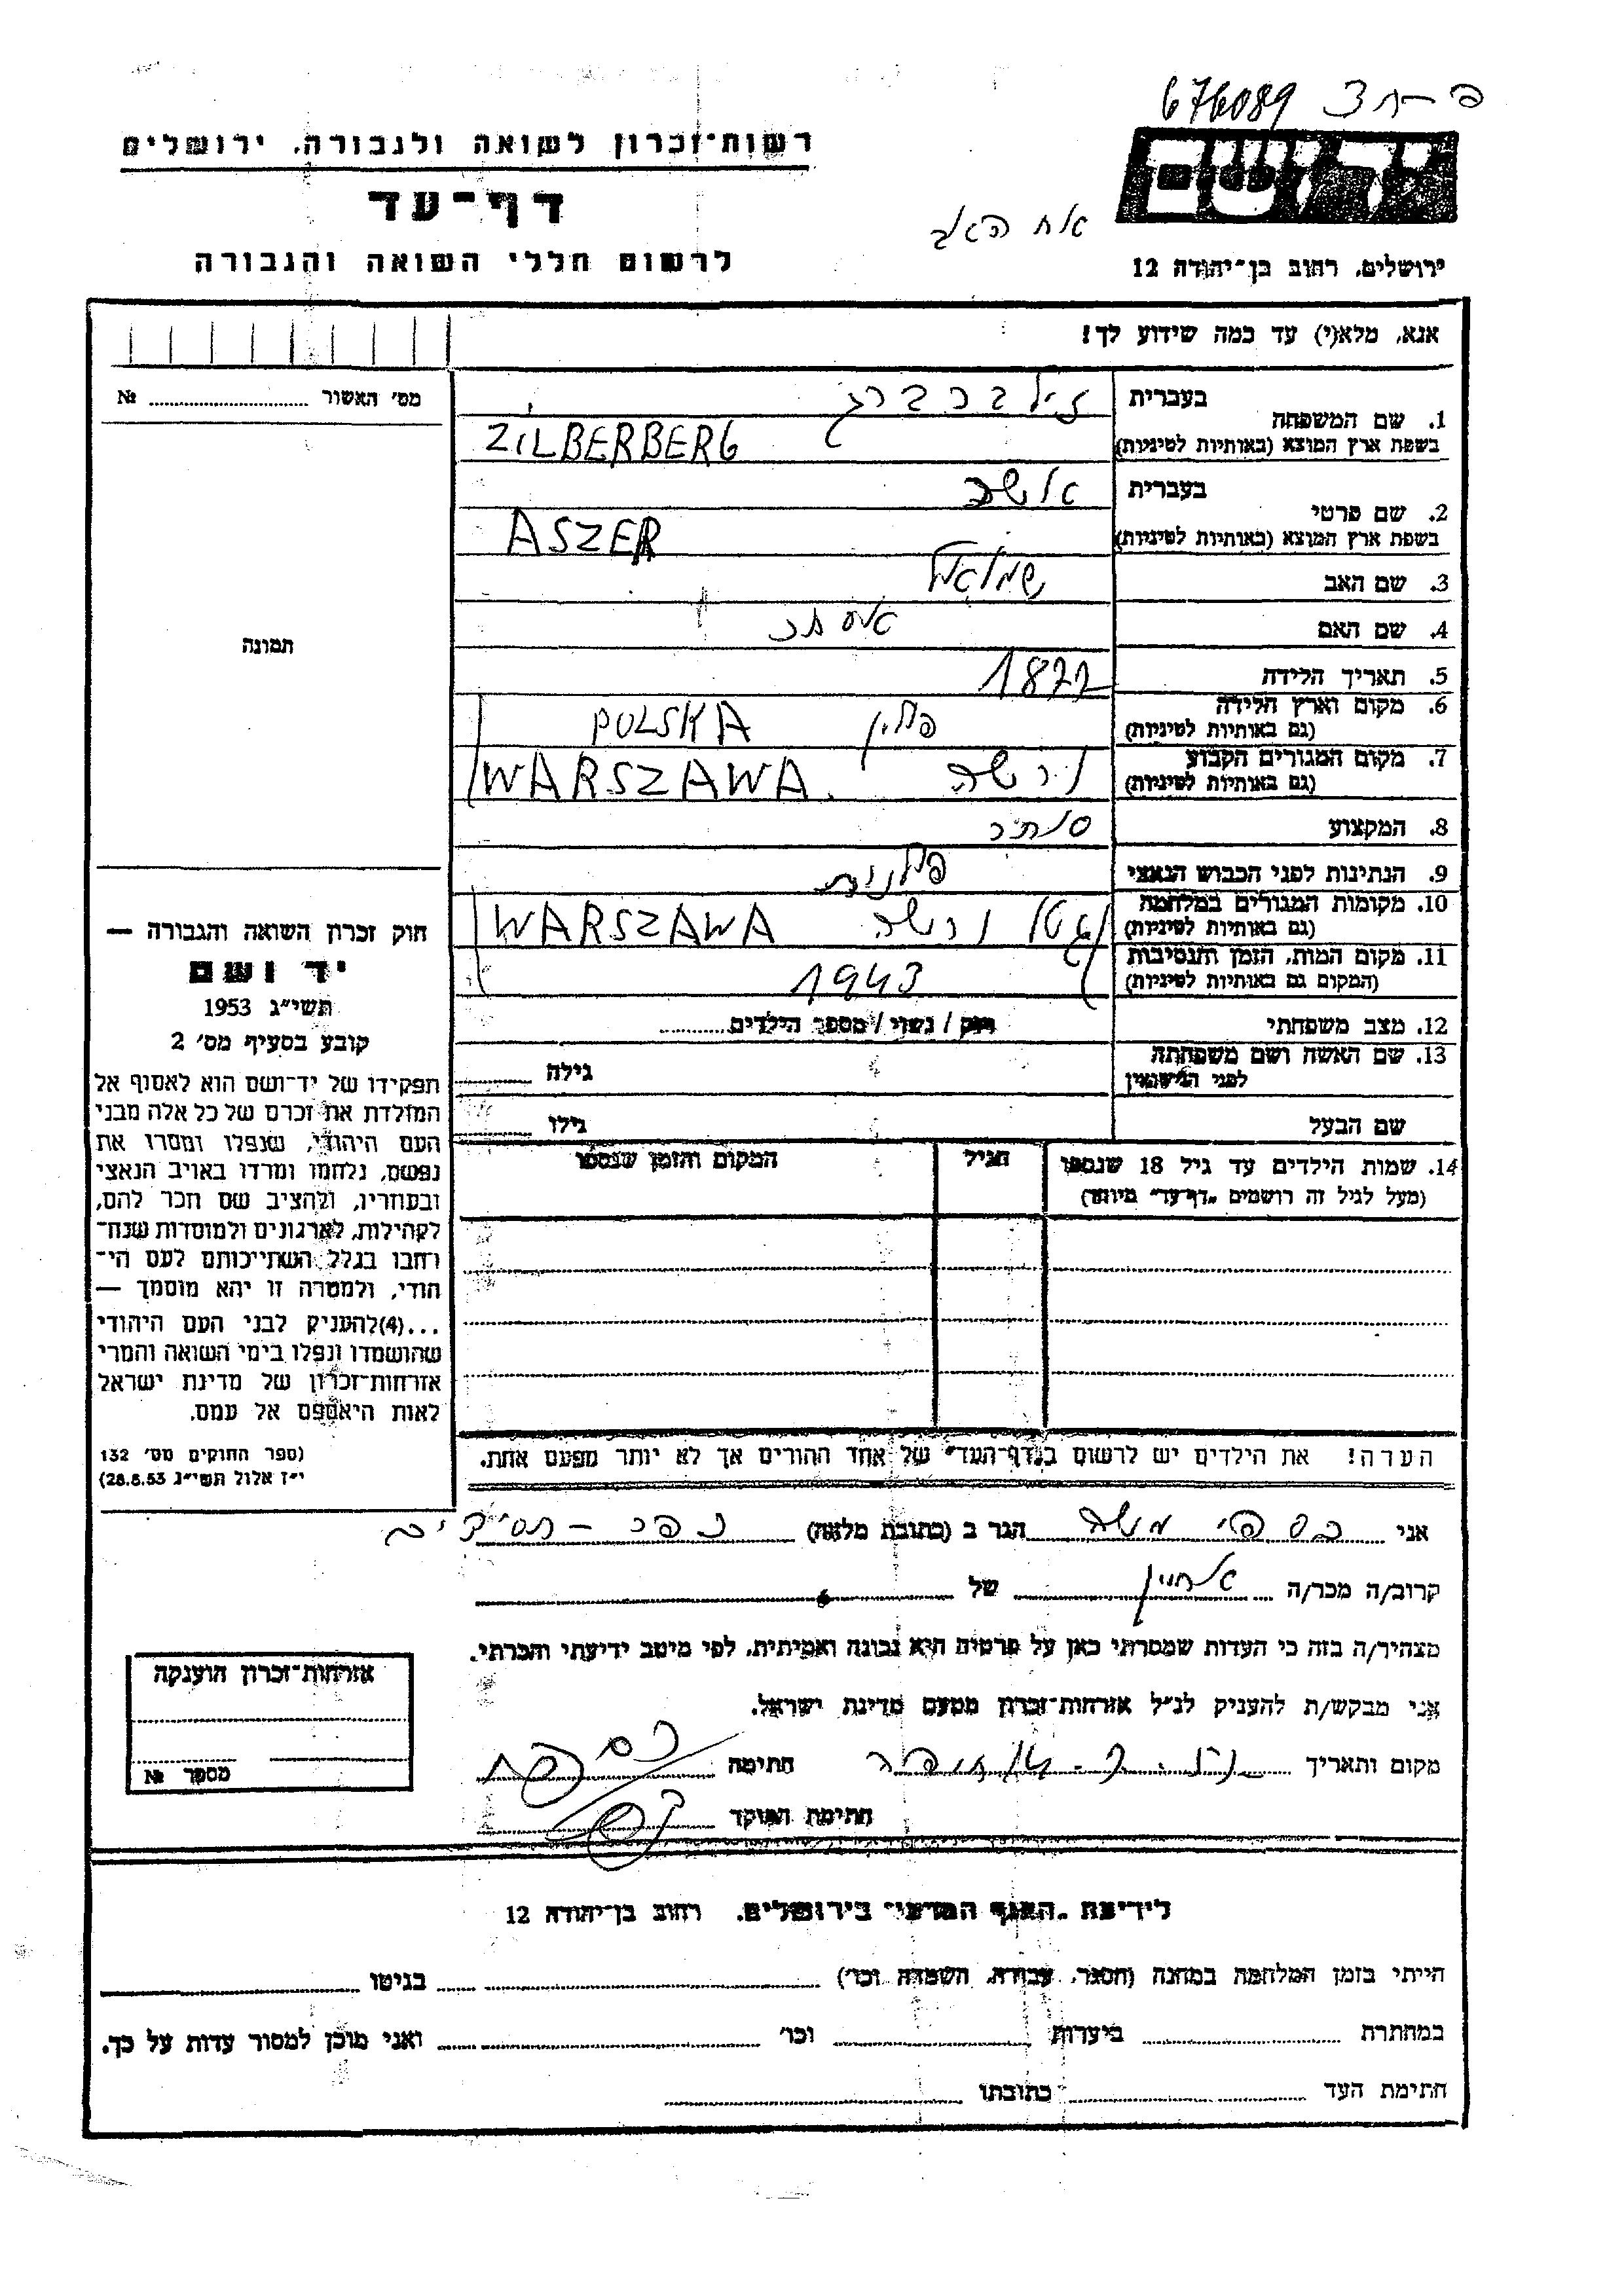 676089 פ-ת 3
רשות־זכרון לשואה ולגבורה, ירושלים
דף־עד
לרשום חללי השואה והגבורה
יד ושם
אח האב
ירושלים, רחוב בן־יהודה 12
אנא, מלא(י) עד כמה שידוע לך!
מס׳ האשור № ........
תמונה
בעברית זילברברג
1. שם המשפחה
בשפת ארץ המוצא (באותיות לטיניות) ZILBERBERG
בעברית אשר
2. שם פרטי
בשפת ארץ המוצא (באותיות לטיניות) ASZER
3. שם האב שמואל
4. שם האם אסתר
5. תאריך הלידה 1877
6. מקום וארץ הלידה פולין POLSKA
(גם באותיות לטיניות)
7. מקום המגורים הקבוע ורשה WARSZAWA
(גם באותיות לטיניות)
8. המקצוע סוחר
9. הנתינות לפני הכבוש הנאצי פולנית
10. מקומות המגורים במלחמה גטו ורשה WARSZAWA
(גם באותיות לטיניות)
11. מקום המות, הזמן והנסיבות 1943
(המקום גם באותיות לטיניות)
12. מצב משפחתי רווק / נשוי / מספר הילדים........
13. שם האשה ושם משפחתה
לפני הנישואין גילה
שם הבעל גילו
14. שמות הילדים עד גיל 18 שנספו הגיל המקום והזמן שנספו
(מעל לגיל זה רושמים "דף־עד" מיוחד)
חוק זכרון השואה והגבורה —
יד ושם
תשי״ג 1953
קובע בסעיף מס׳ 2
תפקידו של יד־ושם הוא לאסוף אל
המולדת את זכרם של כל אלה מבני
העם היהודי, שנפלו ומסרו את
נפשם, נלחמו ומרדו באויב הנאצי
ובעוזריו, ולהציב שם וזכר להם,
לקהילות, לארגונים ולמוסדות שנח־
רחבו בגלל השתייכותם לעם הי־
הודי, ולמטרה זו יהא מוסמך —
...(4)להעניק לבני העם היהודי
שהושמדו ונפלו בימי השואה והמרי
אזרחות־זכרון של מדינת ישראל
לאות היאספם אל עמם.
(ספר החוקים מס׳ 132
י״ז אלול תשי״ג 28.8.53)
הערה! את הילדים יש לרשום ב"דף־העד" של אחד ההורים אך לא יותר מפעם אחת.
אני כספי משה הגר ב (כתובת מלאה) כפר-חסידים
קרוב/ה מכר/ה אחיין של
מצהיר/ה בזה כי העדות שמסרתי כאן על פרטיה היא נכונה ואמיתית, לפי מיטב ידיעתי והכרתי.
אני מבקש/ת להעניק לנ״ל אזרחות־זכרון מטעם מדינת ישראל.
מקום ותאריך חתימה
חתימת הפוקד
אזרחות־זכרון הוענקה
מספר №
לידיעת "האגף המדעי" בירושלים, רחוב בן־יהודה 12
הייתי בזמן המלחמה במחנה (הסגר, עבודה, השמדה וכו׳) בגיטו
במחתרת ביערות וכו׳ ואני מוכן למסור עדות על כך.
חתימת העד כתובתו